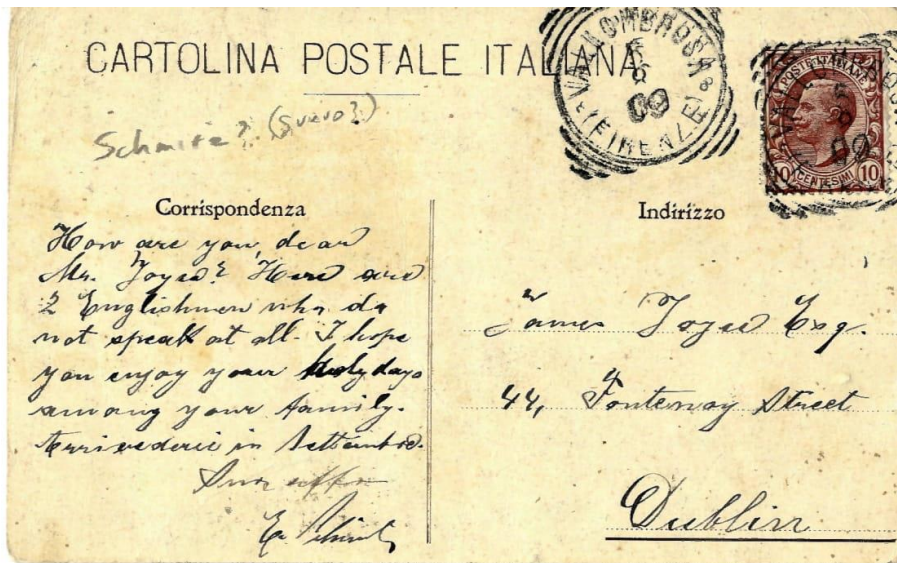 CARTOLINA POSTALE ITALIANA
Schmitz? (Svevo?)
VALLOMBROSA
(FIRENZE)
09
POSTE ITALIANE
10 CENTESIMI 10
VALLOMBROSA
09
Corrispondenza
Indirizzo
How are you, dear
Mr. Joyce? Here are
2 Englishmen who do
not speak at all. I hope
you enjoy your holydays
among your family.
Arrivederci in Settembre.
E. Schmitz
James Joyce Esq.
44, Fontenoy Street
Dublin